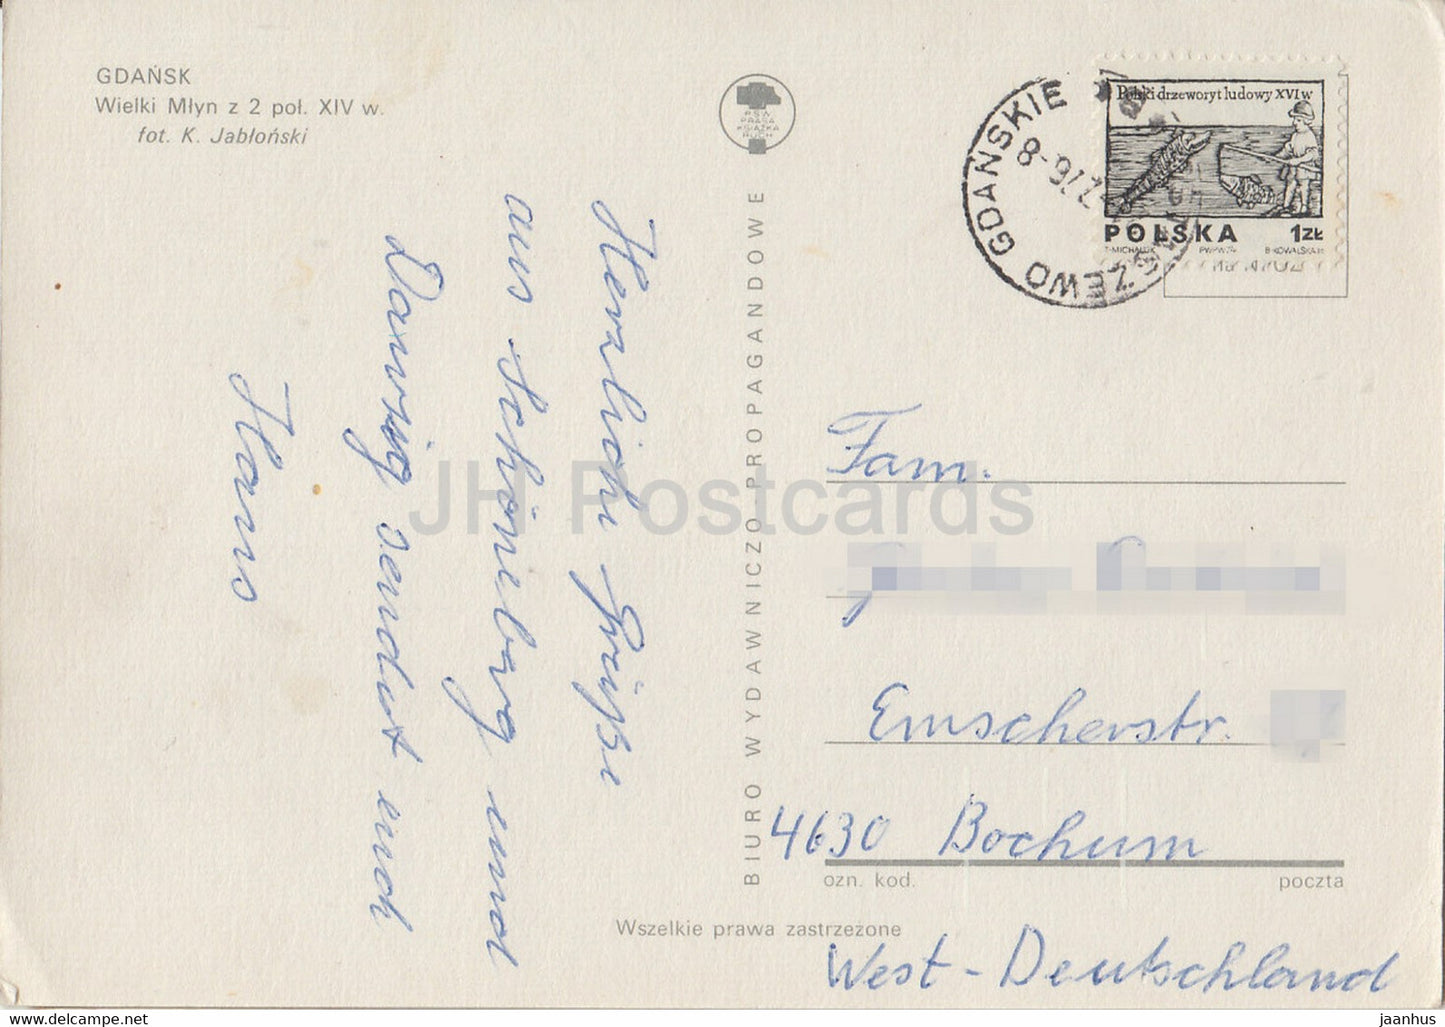 GDAŃSK
Wielki Młyn z 2 poł. XIV w.
fot. K. Jabłoński
RSW
PRASA
KSIĄŻKA
RUCH
BIURO WYDAWNICZO-PROPAGANDOWE
Herzlich Grüße
aus Schönberg und
Danzig sendet euch
Hans
GDAŃSKIE
Polski drzeworyt ludowy XVI w
POLSKA 1ZŁ
T·MICHALUK PWPW·74 B·KOWALSKA
Fam.
Emscherstr.
4630 Bochum
ozn. kod. poczta
West-Deutschland
Wszelkie prawa zastrzeżone
JH Postcards
www.delcampe.net
jaanhus